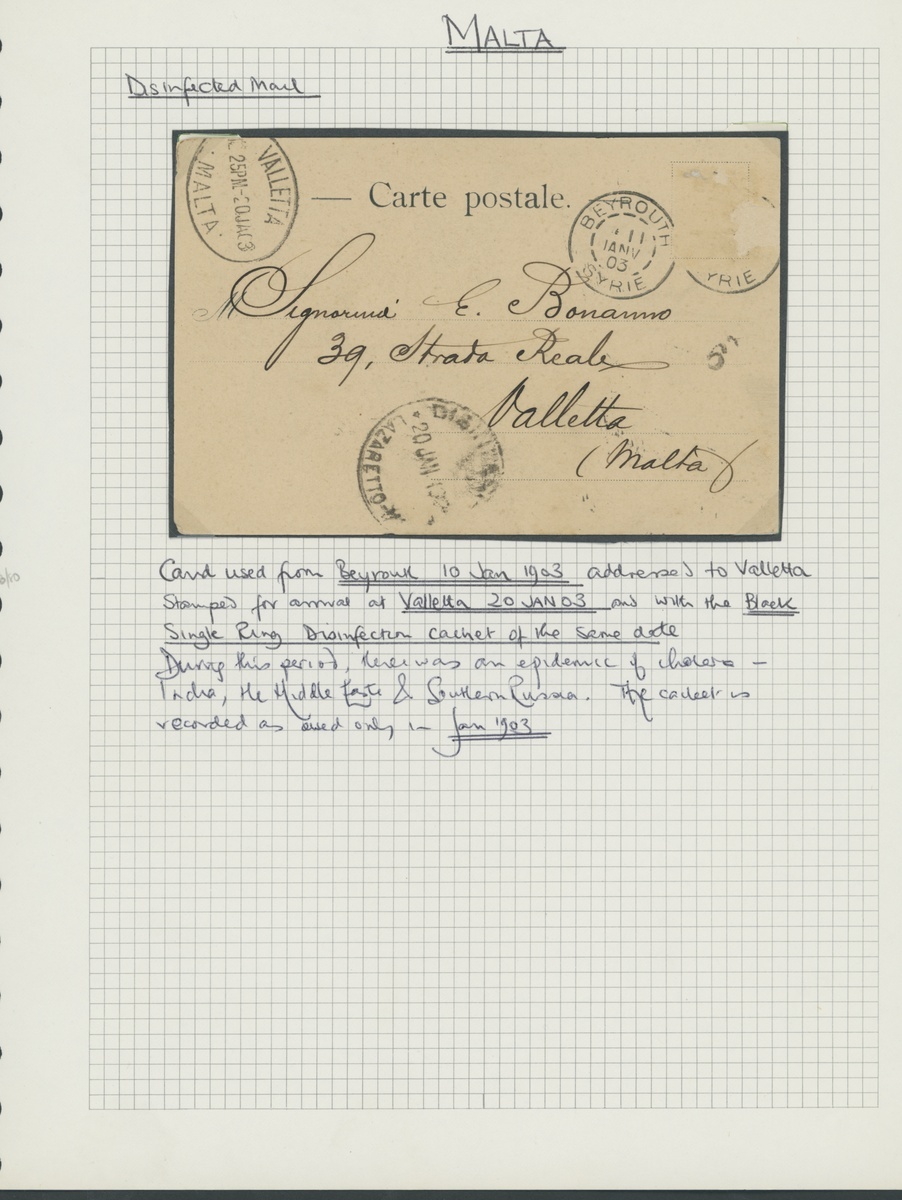 MALTA
Disinfected Mail
VALLETTA
25PM-20JA03
MALTA
— Carte postale.
BEYROUTH
11
JANV
03
SYRIE
YRIE
M Signorina E. Bonanno
39, Strada Reale
Valletta
(Malta)
LAZZARETTO
20 JAN
Card used from Beyrouth 10 Jan 1903 addressed to Valletta
Stamped for arrival at Valletta 20 JAN 03 and with the Black
Single Ring Disinfection cachet of the same date
During this period, there was an epidemic of cholera –
India, the Middle East & Southern Russia. The cachet is
recorded as used only in Jan 1903